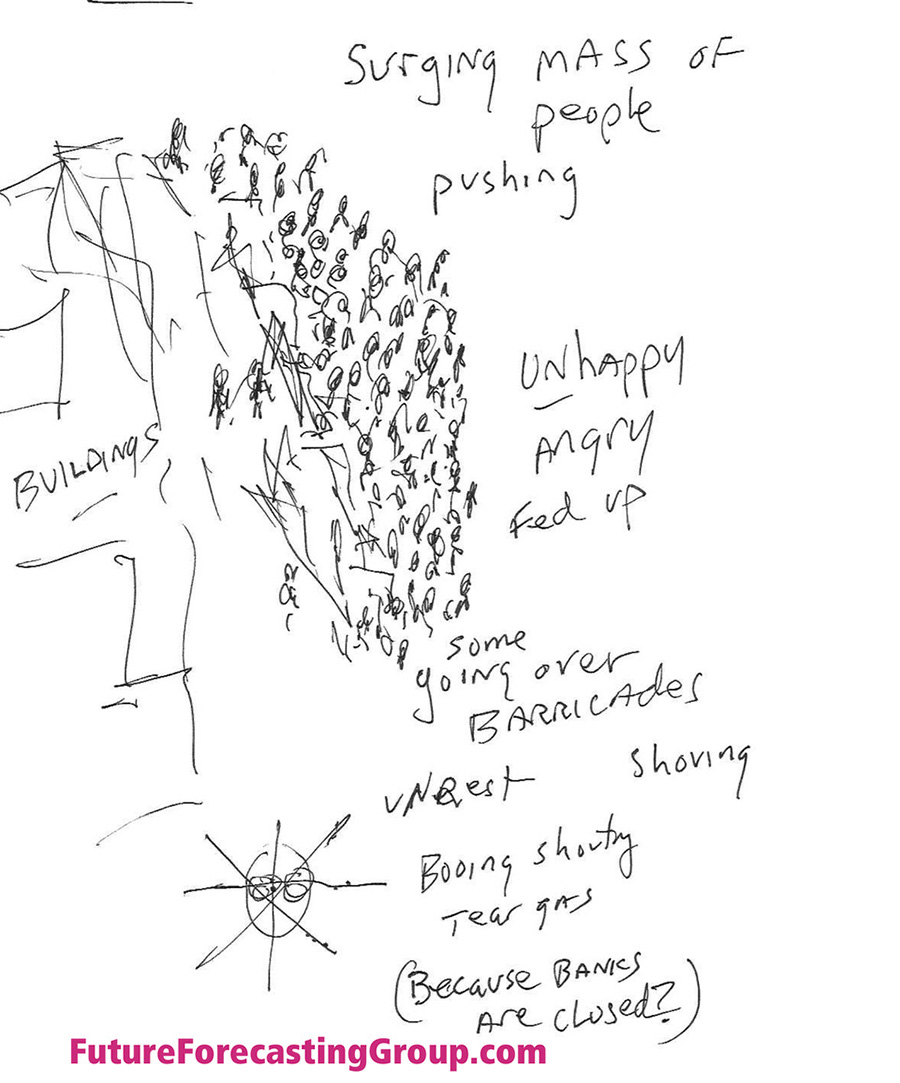 Surging MASS OF
people
pushing
UNhappy
Angry
Fed up
BUILDINGS
some
going over
BARRICADES
shoving
UNRest
Booing shouting
Tear gas
(Because BANKS
Are closed?)
FutureForecastingGroup.com